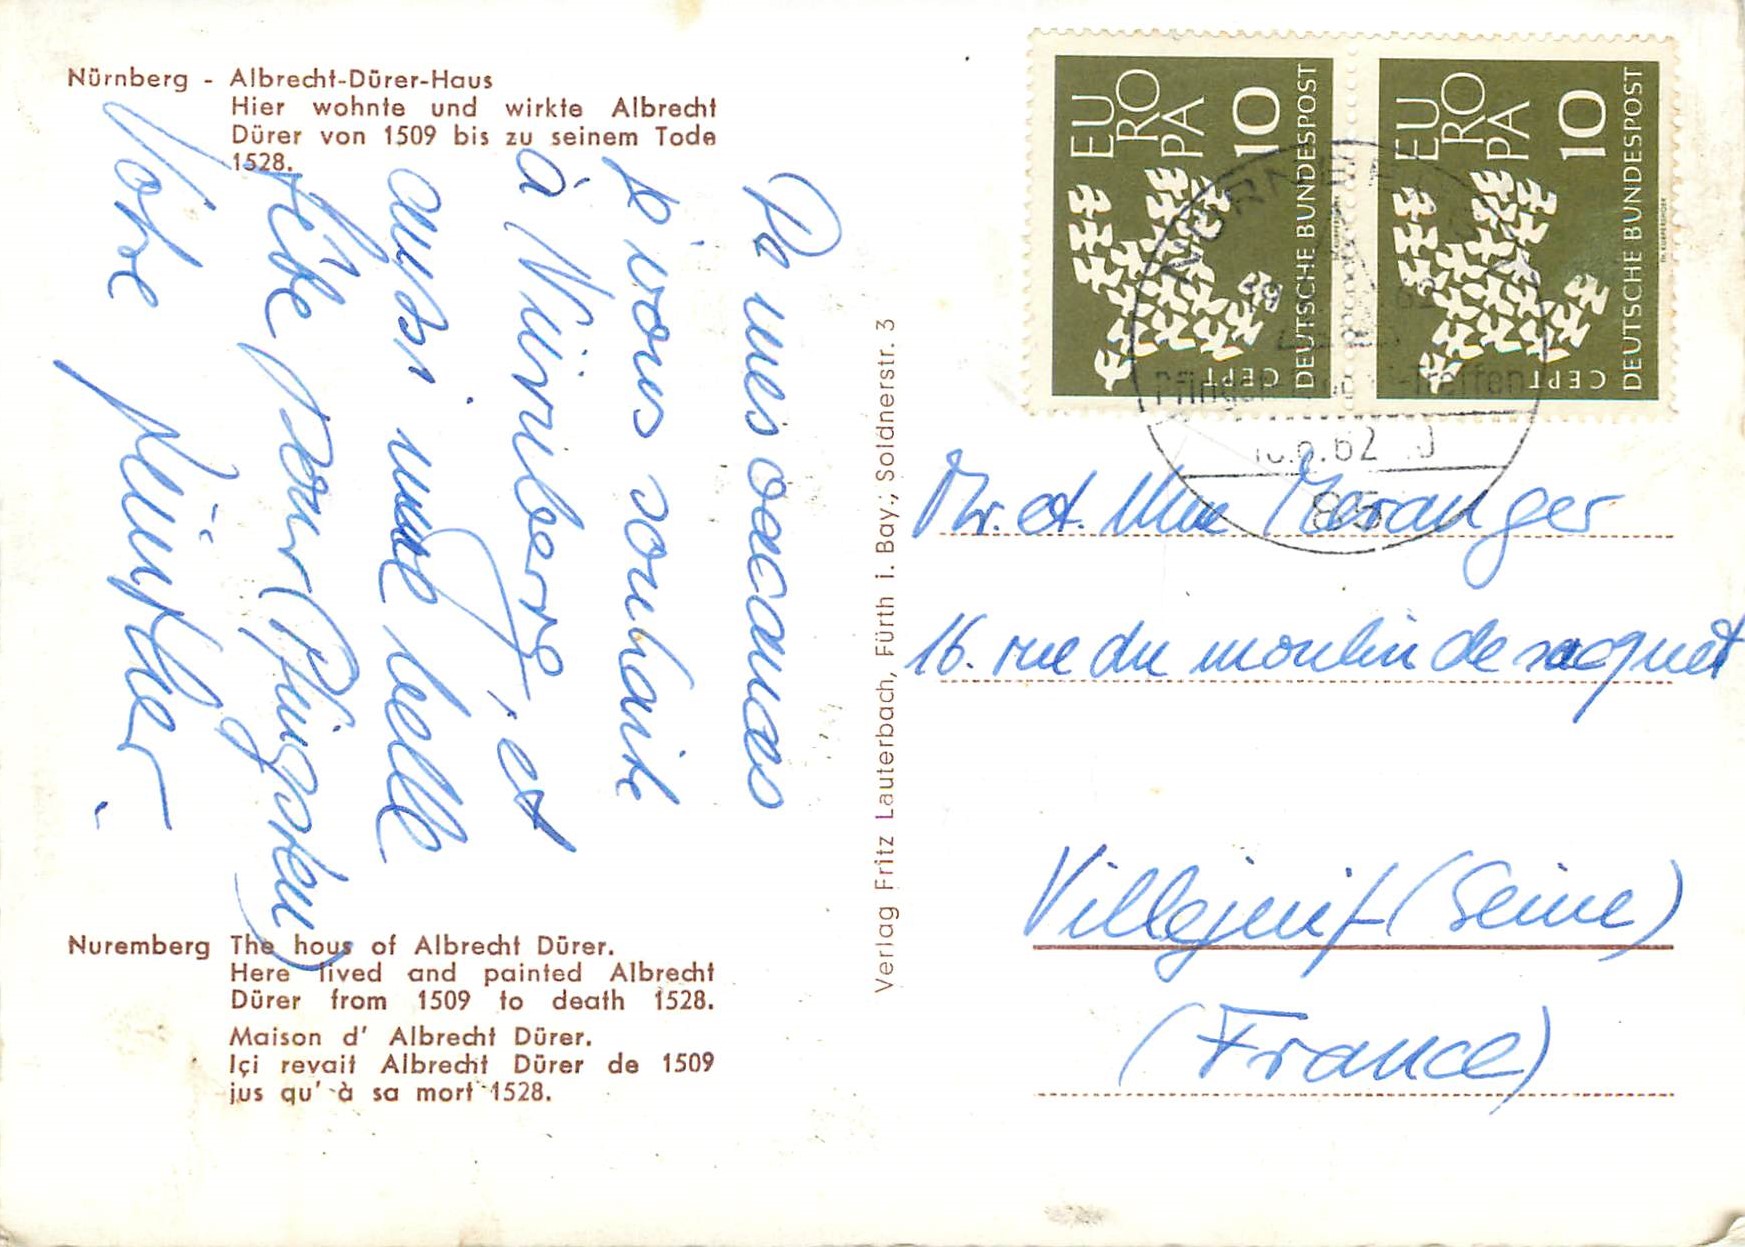 Nürnberg - Albrecht-Dürer-Haus
Hier wohnte und wirkte Albrecht
Dürer von 1509 bis zu seinem Tode
1528.
je vous souhaite
à Nürnberg, et
aussi une belle
fête pour (Pfingsten)
Votre
Nuremberg The hous of Albrecht Dürer.
Here lived and painted Albrecht
Dürer from 1509 to death 1528.
Maison d' Albrecht Dürer.
Içi revait Albrecht Dürer de 1509
jus qu' à sa mort 1528.
Verlag Fritz Lauterbach, Fürth i. Bay.; Soldnerstr. 3
EU
RO
PA
10
DEUTSCHE BUNDESPOST
CEPT
EU
RO
PA
10
DEUTSCHE BUNDESPOST
CEPT
NÜRNBERG
Treffen
.6.62
85
Mr. et. Mme Meranger
16. rue du moulin de sacquet
Villejuif (Seine)
(France)